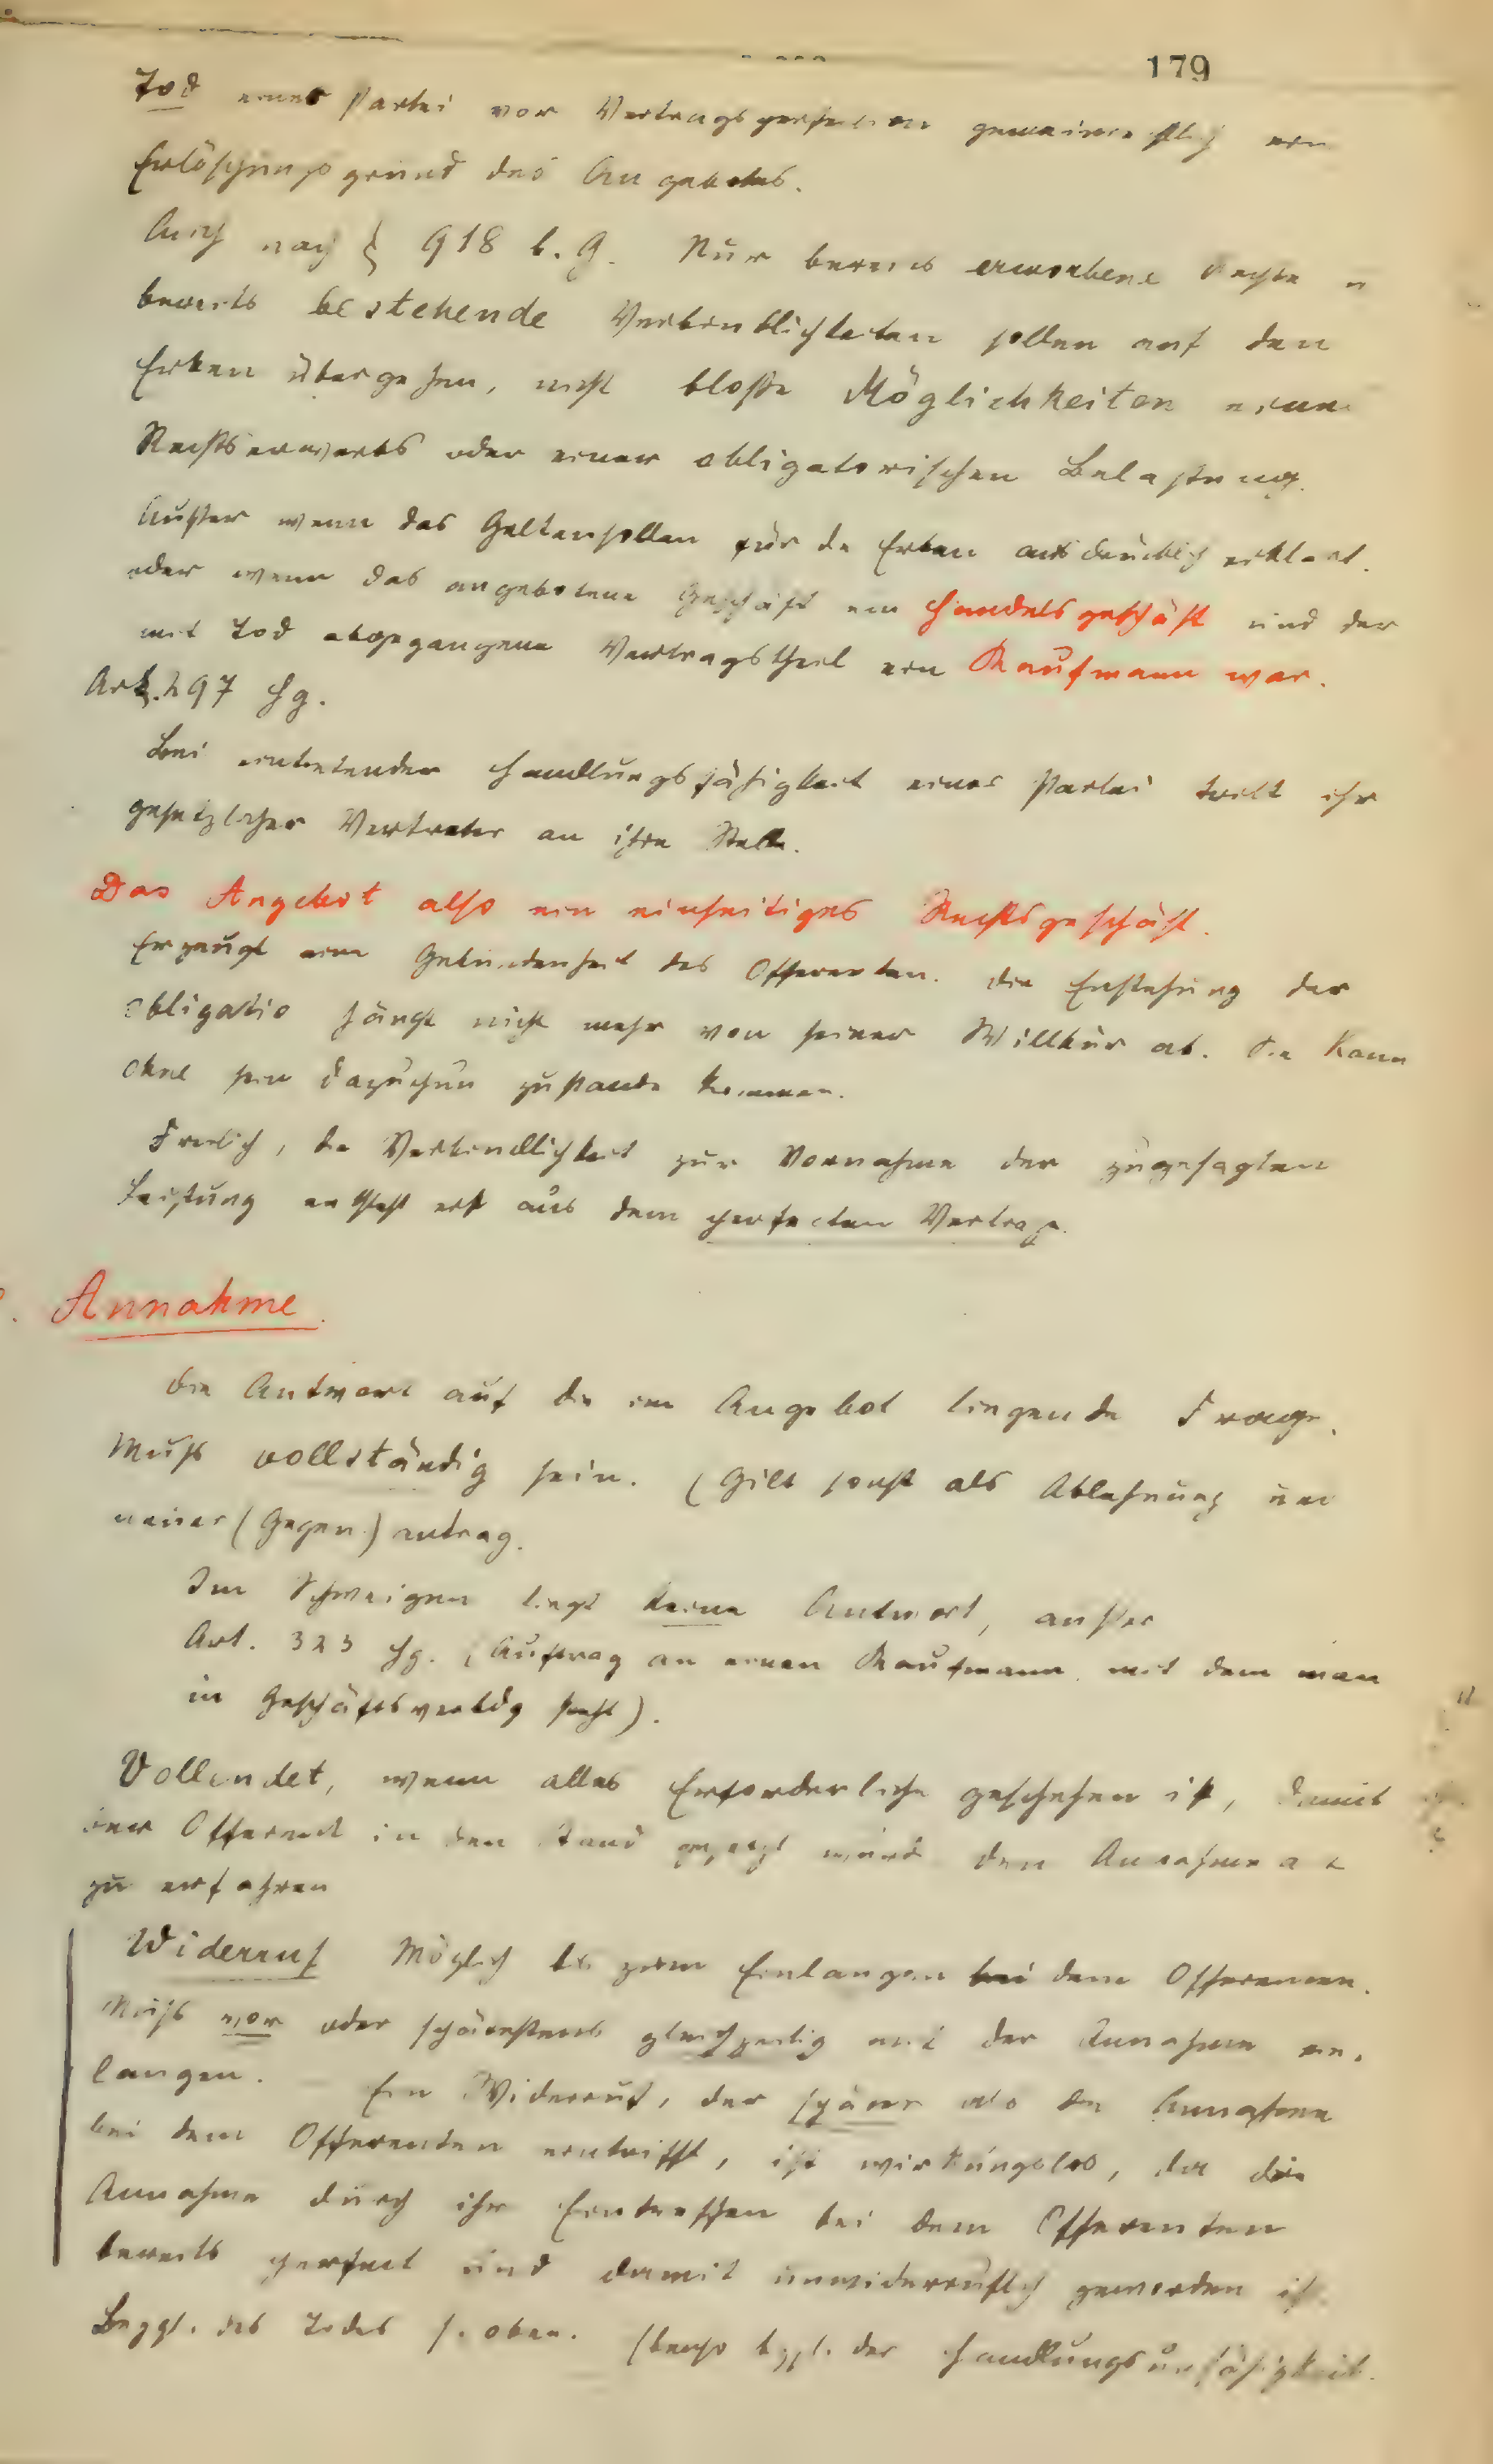 179
Tod einer Partei vor Vertragsperfection gemeinrechtlich ein
Erlöschungsgrund des Angebotes.
Auch nach § 918 b. G. Nur bereits erworbene Rechte u
bereits bestehende Verbindlichkeiten sollen auf den
Erben übergehen, nicht bloße Möglichkeiten eines
Rechtserwerbs oder einer obligatorischen Belastung.
Außer wenn das Geltensollen für die Erben ausdrücklich erklärt.
oder wenn das angebotene Geschäft ein Handelsgeschäft und der
mit Tod abgegangene Vertragstheil ein Kaufmann war.
Art. 297 Hg.
Bei eintretender Handlungsfähigkeit einer Partei tritt ihr
gesetzlicher Vertreter an ihre Stelle.
Das Angebot also ein einseitiges Rechtsgeschäft.
Erzeugt eine Gebundenheit des Offerenten. Die Enstehung der
obligatio hängt nicht mehr von seiner Willkür ab. Sie kann
ohne sein Dazuthun zustande kommen.
Freilich, die Verbindlichkeit zur Vornahme der zugesagten
Leistung entsteht erst aus dem perfecten Vertrage.
Annahme.
Die Antwort auf die im Angebot liegende Frage.
Muß vollständig sein. (Gilt sonst als Ablehnung und
neuer (Gegen) antrag.
Im Schweigen liegt keine Antwort, außer
Art. 323 Hg. (Auftrag an einen Kaufmann mit dem man
in Geschäftsverbdg steht).
Vollendet, wenn alles Erforderliche geschehen ist, damit
der Offerent in den Stand gesetzt wird den Annahmeact
zu erfahren
Widerruf Möglich bis zum Einlangen bei dem Offerenten.
Muß vor oder spätestens gleichzeitig mit der Annahme ein-
langen. Ein Widerruf, der später als die Annahme
bei dem Offerenten eintrifft, ist wirkungslos, da die
Annahme durch ihr Eintreffen bei dem Offerenten
bereits perfect und damit unwiderruflich geworden ist.
Bezgl. des Todes s. oben. Ebenso bzgl. der Handlungsunfähigkeit.